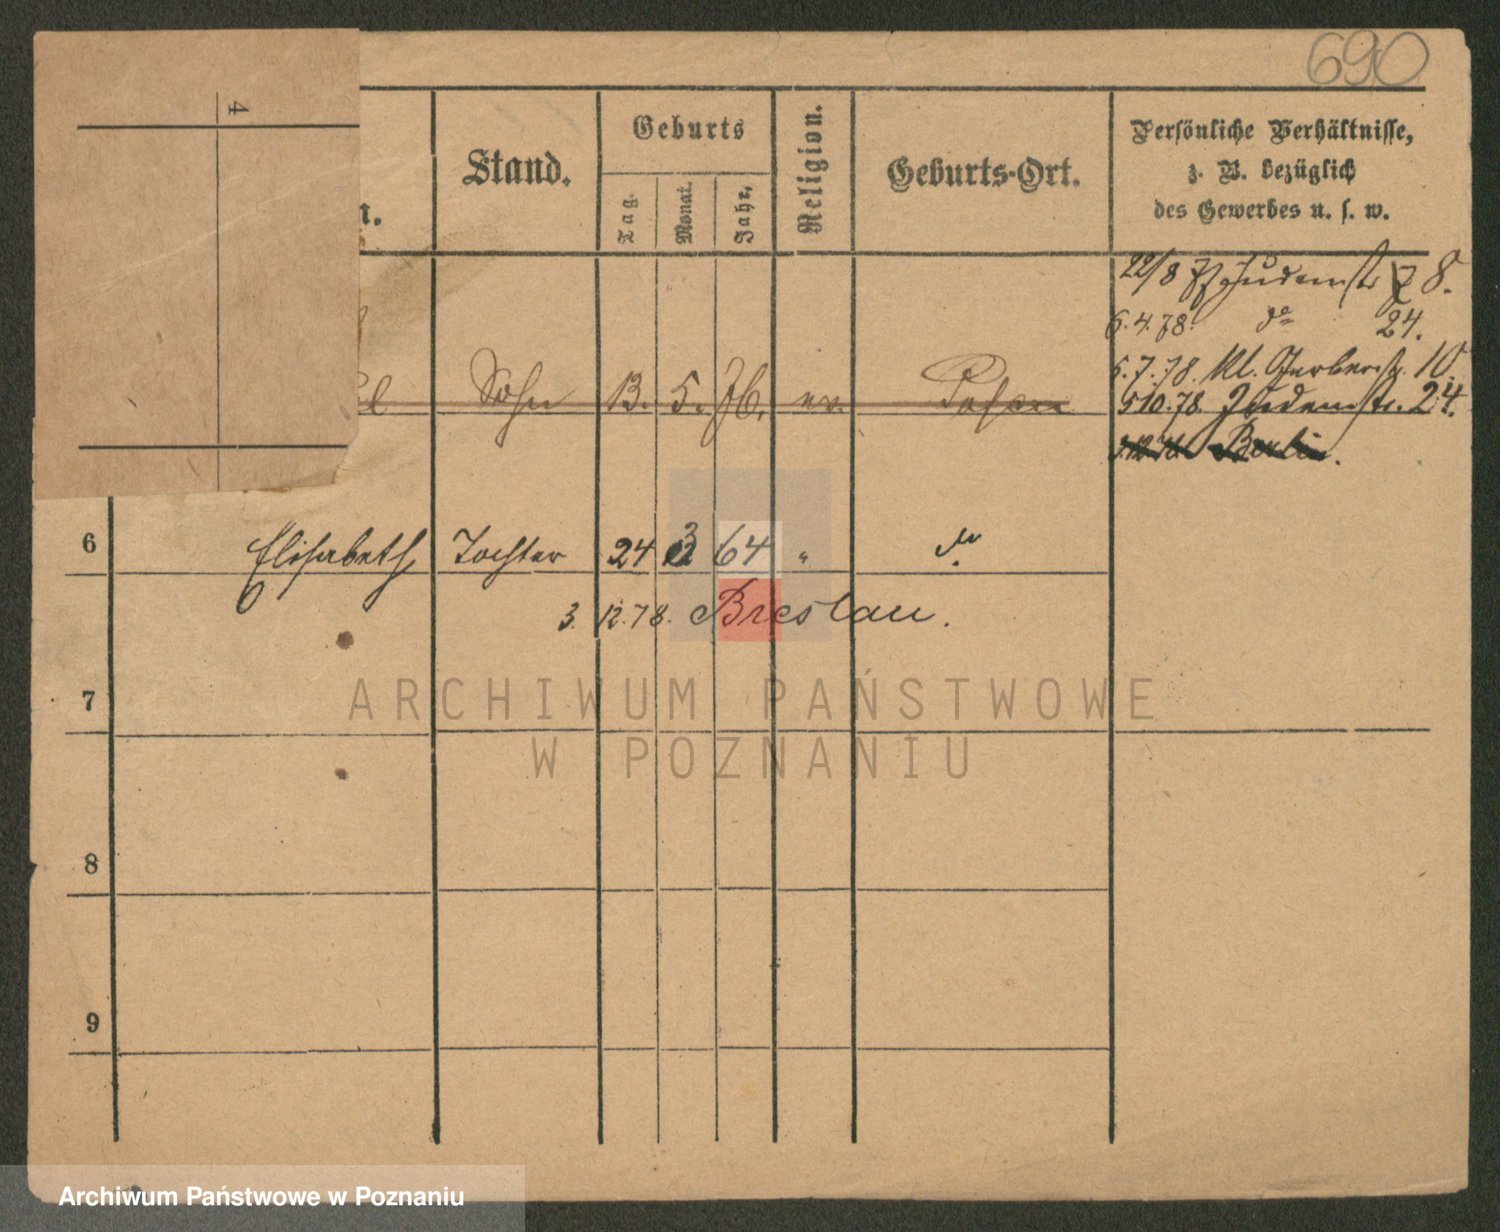 690
4
n.
Stand.
Geburts
Tag.
Monat.
Jahr.
Religion.
Geburts-Ort.
Persönliche Verhältnisse,
z. B. bezüglich
des Gewerbes u. s. w.
22/8 78.
6.4.78. do 24.
5.7.78. Kl. Gerberstr. 10.
Sohn 13. 5. 76. ev. Posen
5 10.78. Judenstr. 24.
Berlin.
6 Elisabeth Tochter 24 3 64 " do
3. 12. 78. Breslau.
7
8
9
ARCHIWUM PAŃSTWOWE
W POZNANIU
Archiwum Państwowe w Poznaniu